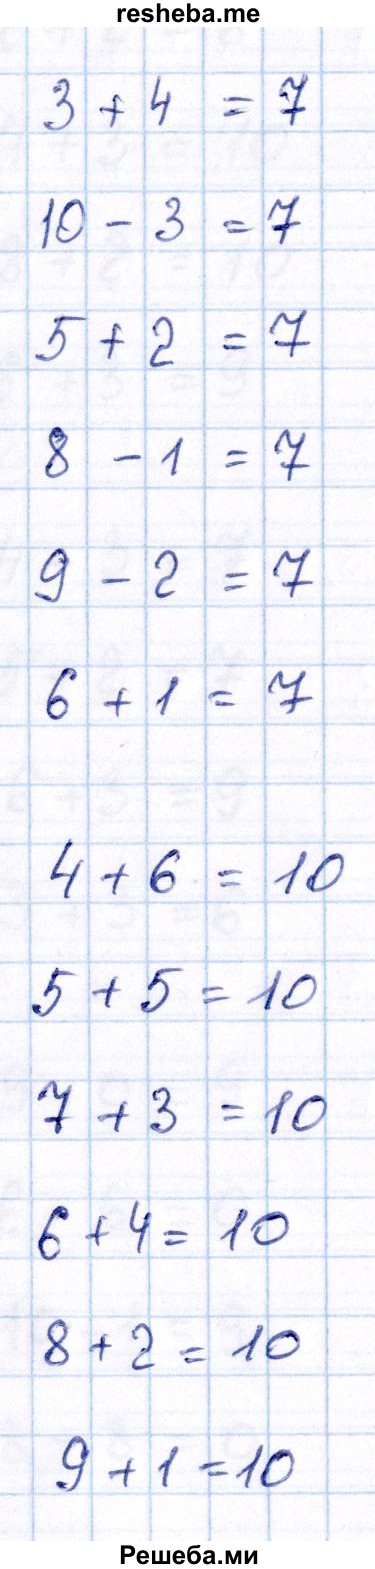 resheba.me
3 + 4 = 7
10 - 3 = 7
5 + 2 = 7
8 - 1 = 7
9 - 2 = 7
6 + 1 = 7
4 + 6 = 10
5 + 5 = 10
7 + 3 = 10
6 + 4 = 10
8 + 2 = 10
9 + 1 = 10
Решеба.ми